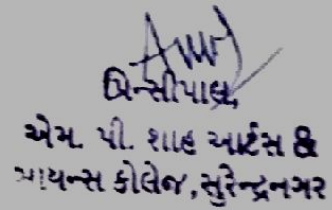 પ્રિન્સીપાલ,
એમ. પી. શાહ આર્ટસ &
સાયન્સ કોલેજ, સુરેન્દ્રનગર